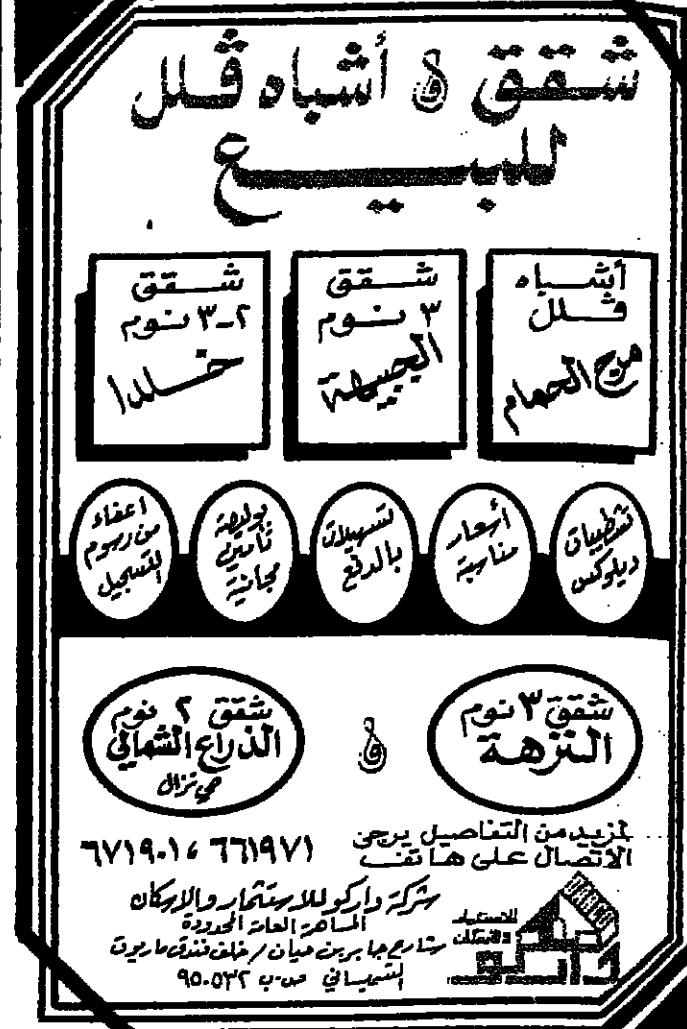 شقق و أشباه ڤلل
للبيع
أشباه
ڤلل
مرج الحمام
شقق
٣ نوم
الجبيهة
شقق
٢-٣ نوم
خلدا
تشطيبات
ديلوكس
أسعار
مناسبة
تسهيلات
بالدفع
بوليصة
تأمين
مجانية
اعفاء
من رسوم
التسجيل
شقق ٣ نوم
النزهة
و
شقق ٢ نوم
الذراع الشمالي
حي نزال
لمزيد من التفاصيل يرجى
الاتصال على هاتف
٦٦١٩٧١ ، ٦٧١٩٠١
شركة داركو للاستثمار والاسكان
المساهمة العامة المحدودة
شارع جابر بن حيان / خلف فندق ماريوت
الشميساني ص.ب ٩٥٠٥٣٢
داركو
للاستثمار
والاسكان